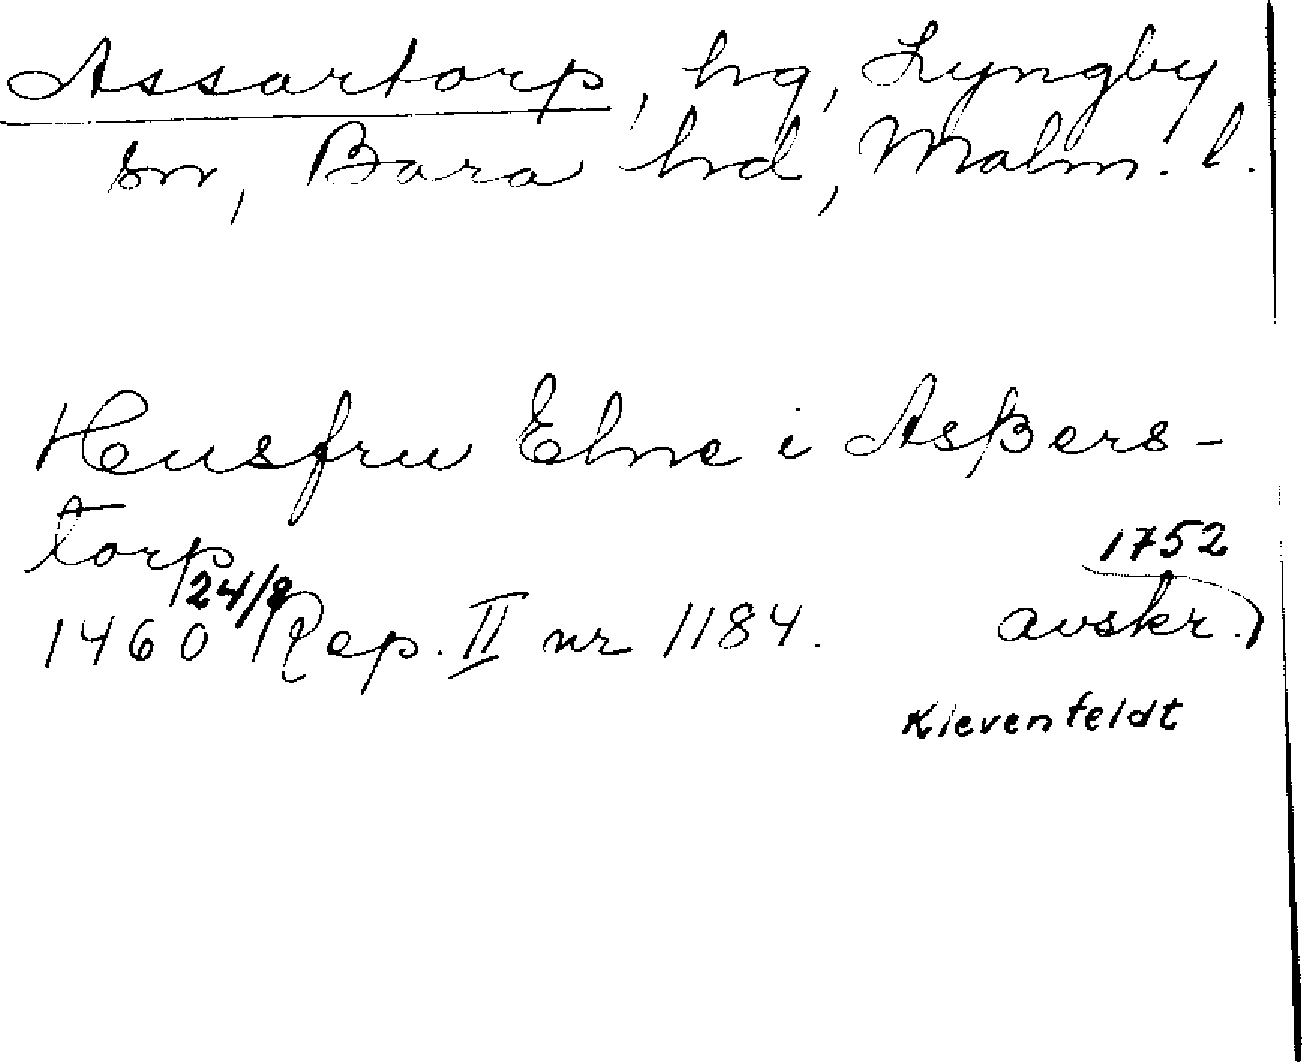 Assartorp, hg, Lyngby
sn, Bara hd, Malm. l.
Husfru Elne i Asßers-
torp
1460 24/8 Rep. II nr 1184.
1752
avskr.)
Klevenfeldt